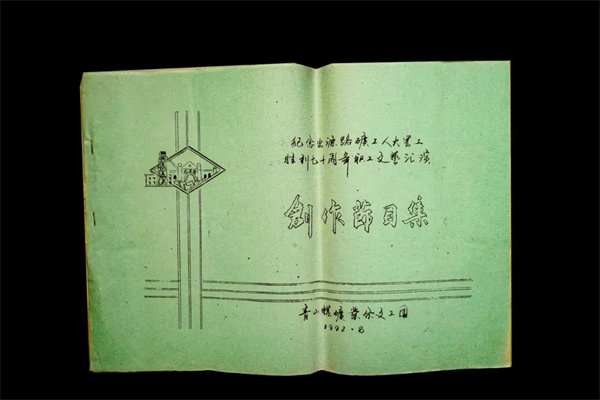 纪念安源路矿工人大罢工
胜利七十周年职工文艺汇演
創作節目集
青山煤礦業余文工团
1992.8